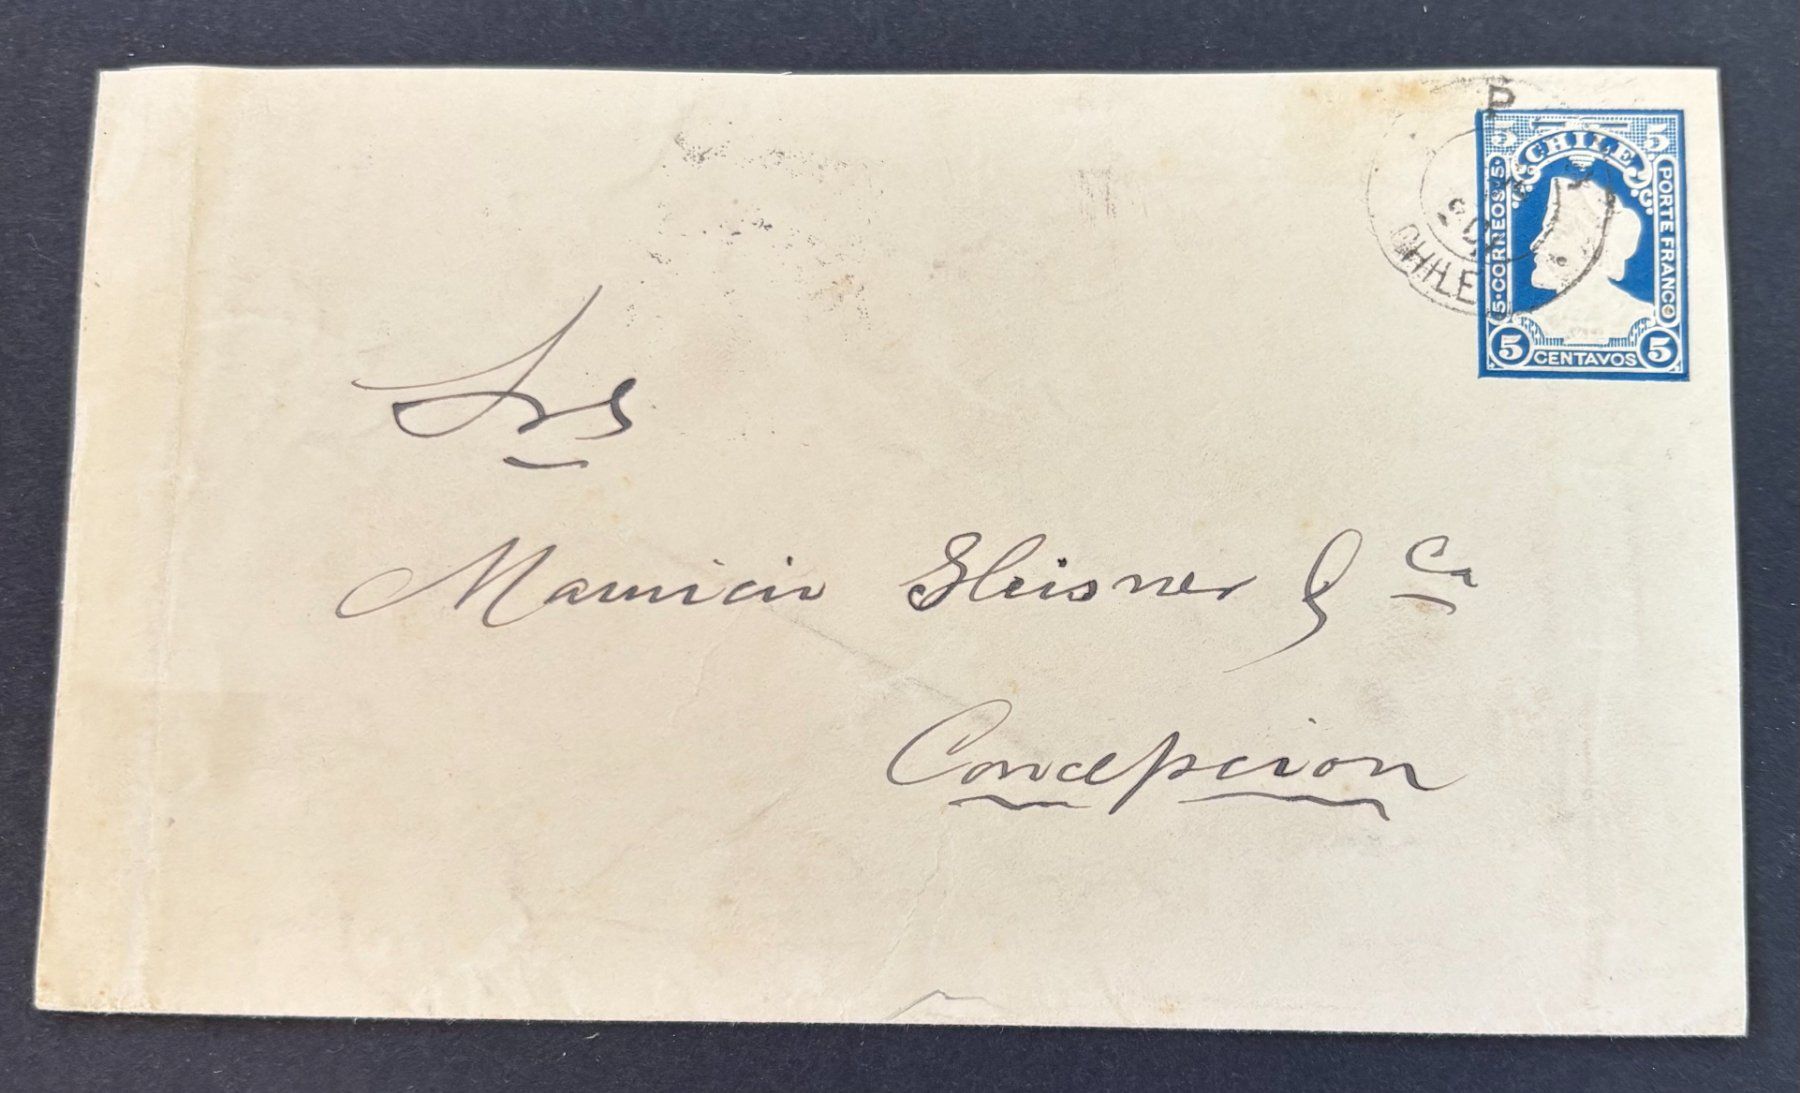 P
5 5
CHILE
5·CORREOS·5
PORTE FRANCO
5 CENTAVOS 5
CHILE
Srs
Mauricio Gleisner y Ca
Concepcion